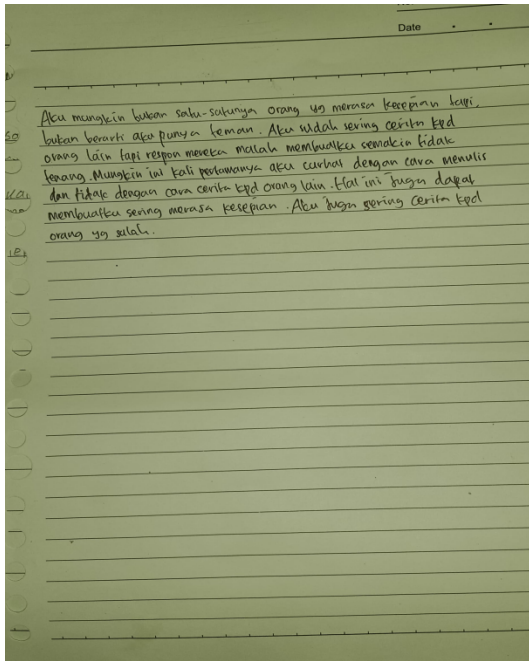 Date . .
Aku mungkin bukan satu-satunya orang yg merasa kesepian tapi.
bukan berarti aku punya teman. Aku sudah sering cerita kpd
orang lain tapi respon mereka malah membuatku semakin tidak
tenang. Mungkin ini kali pertamanya aku curhat dengan cara menulis
dan tidak dengan cara cerita kpd orang lain. Hal ini juga dapat
membuatku sering merasa kesepian. Aku juga sering cerita kpd
orang yg salah.